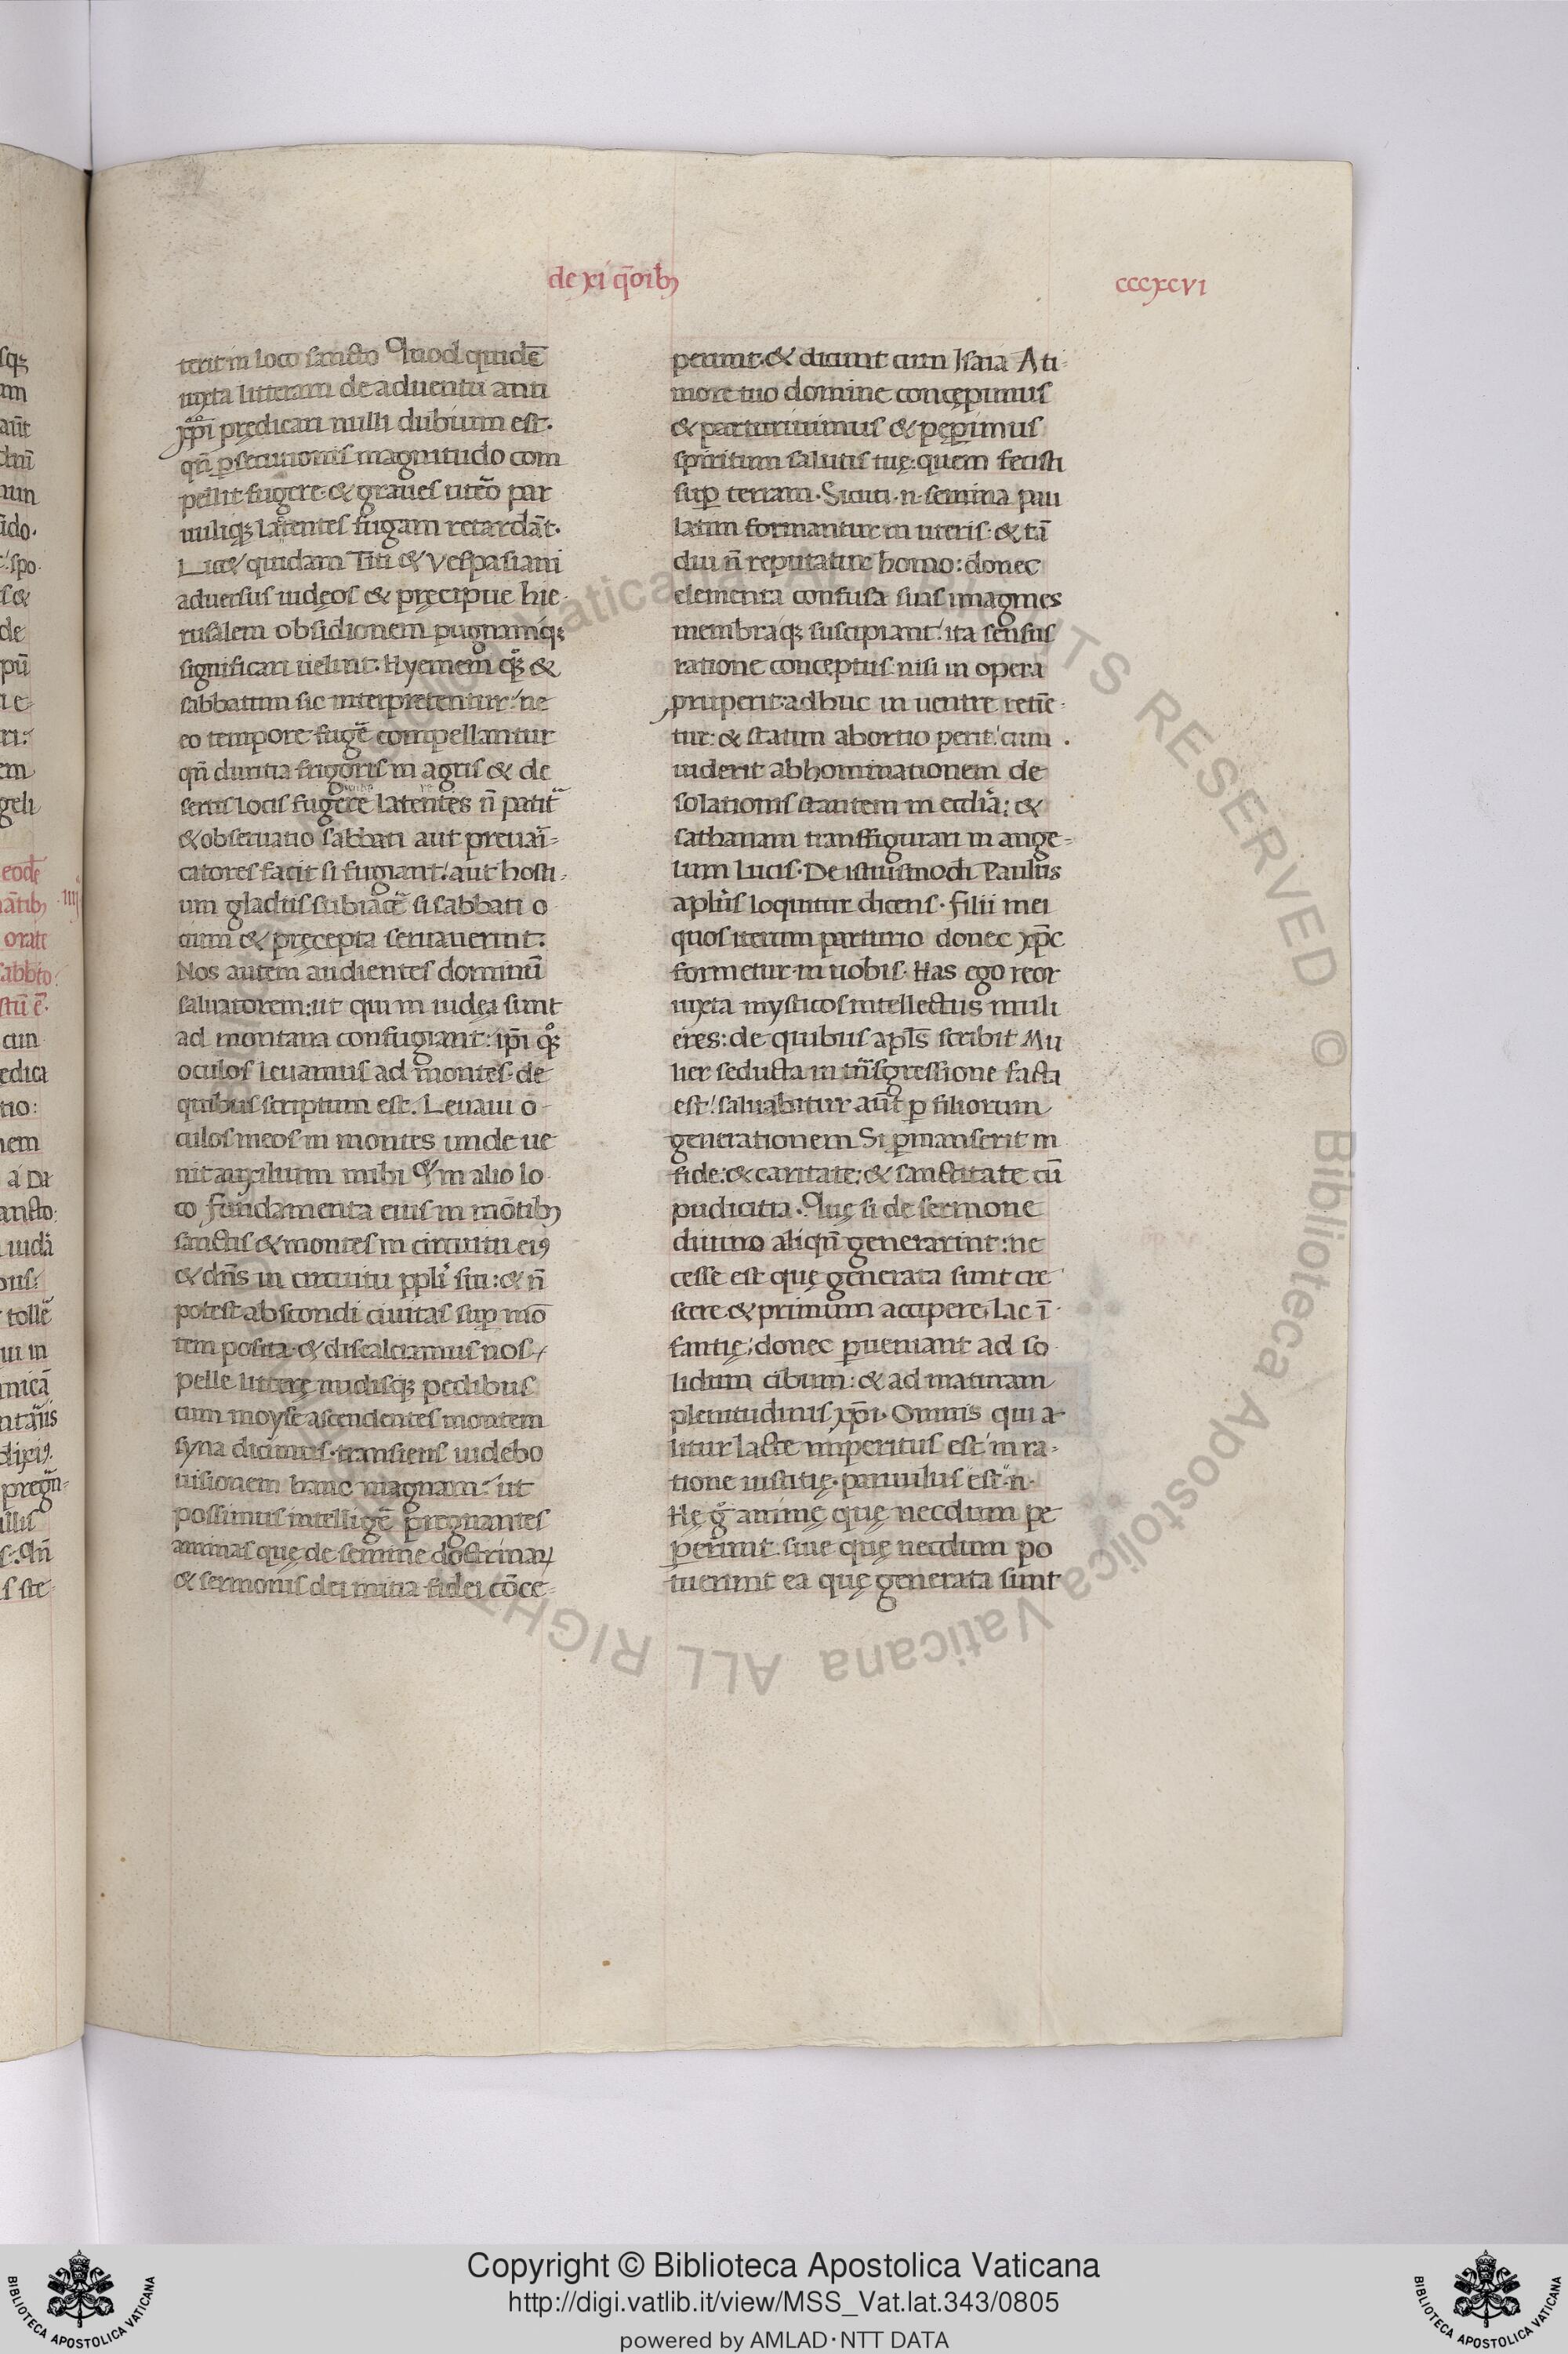 de xi q̄oib;
cccxcvi
terit in loco sancto Quod quidē
iuxta litteram de aduentu anti
xp̄i prędicari nulli dubium est.
qn̄ p̱secutionis magnitudo com
pellit fugere. & graues utẽo par
uuliq; latentes fugam retardāt.
Licet quidam Titi & Vespasiani
aduersus iudęos & pręcipue hie
rusalem obsidionem pugnamq;
significari uelint. Hyemem q̊q; &
sabbatum sic interpretentur. ne
eo tempore fugẽ compellantur
qn̄ duritia frigoris in agris & de
sertis locis fugere latentes n̄ patit̃
& obseruatio sabbati aut preuari-
catores facit si fugiant. aut hosti-
um gladiis subiacẽ si sabbati o
cium & pręcepta seruauerint.
Nos autem audientes dominū
saluatorem: ut qui in iudęa sunt
ad montana confugiant: ip̄i q̊q;
oculos leuamus ad montes. de
quibus scriptum est. Leuaui o
culos meos in montes unde ue
nit auxilium mihi & in alio lo
co fundamenta eius in mōtib;
sanctis & montes in circuitu ei9
& dn̄s in circuitu ppl̓i sui: & n̄
potest abscondi ciuitas sup̱ mō
tem posita. & discalciamus nos
pelle litterę nudisq; pedibus
cum moyse ascendentes montem
syna dicimus. transiens uidebo
uisionem hanc magnam. ut
possimus intelligẽ pregnantes
animas quę de semine doctrinaꝝ
& sermonis dei initia fidei cōce-
perunt. & dicunt cum Isaia A ti
more tuo domine concępimus
& parturiuimus & pępimus
spiritum salutis tuę: quem fecisti
sup̱ terram. Sicuti .n. semina pau
latim formantur in uteris. & tā
diu n̄ reputatur homo: donec
elementa confusa suas imagines
membraq; suscipiant. ita sensus
ratione conceptus. nisi in opera
pruperit. adhuc in uentre retiē-
tur: & statim abortio perit. cum
uiderit abhominationem de
solationis stantem in eccl̓ia: &
sathanam transfigurari in ange-
lum lucis. De istiusmodi Paulus
apl̓us loquitur dicens. filii mei
quos iterum parturio donec xp̄c
formetur in uobis. Has ego reor
iuxta mysticos intellectus muli
eres: de quibus apl̄s scribit Mu
lier seducta in trāsgressione facta
est. saluabitur aūt p̱ filiorum
generationem Si p̱manserit in
fide: & caritate: & sanctitate cū
pudicitia. Quę si de sermone
diuino aliqn̄ generarint: ne
cesse est quę generata sunt cre
scere & primum accipere lac ī
fantię: donec p̱ueniant ad so
lidum cibum: & ad maturam
plenitudinis xp̄i. Omnis qui a-
litur lacte imperitus est in ra-
tione iustitię. paruulus est .n.
Hę g̊ animę quę necdum pe
perunt. siue quę necdum po
tuerunt ea quę generata sunt
Copyright © Biblioteca Apostolica Vaticana
http://digi.vatlib.it/view/MSS_Vat.lat.343/0805
powered by AMLAD·NTT DATA
BIBLIOTECA APOSTOLICA VATICANA
BIBLIOTECA APOSTOLICA VATICANA